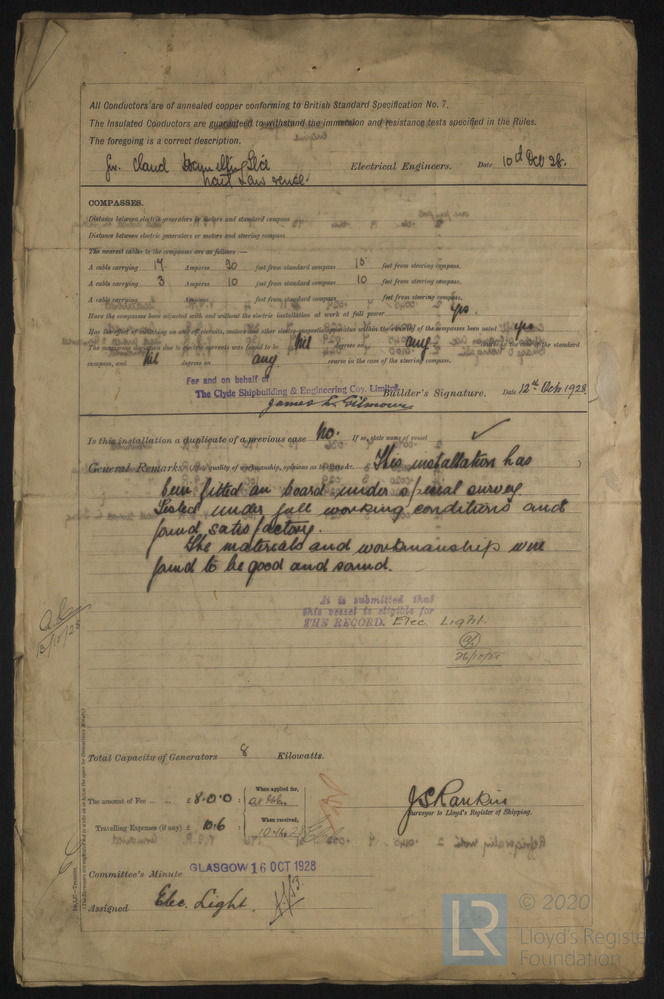 All Conductors are of annealed copper conforming to British Standard Specification No. 7.
The Insulated Conductors are guaranteed to withstand the immersion and resistance tests specified in the Rules.
The foregoing is a correct description.
for Claud Hamilton Ltd Electrical Engineers. Date 10th Oct 28.
COMPASSES.
Distance between electric generators or motors and standard compass
Distance between electric generators or motors and steering compass
The nearest cables to the compasses are as follows:—
A cable carrying 14 Amperes 20 feet from standard compass 15 feet from steering compass.
A cable carrying 3 Amperes 10 feet from standard compass 10 feet from steering compass.
A cable carrying Amperes feet from standard compass feet from steering compass.
Have the compasses been adjusted with and without the electric installation at work at full power yes.
Has the effect of switching on and off circuits, motors and other electro-magnetic apparatus within the vicinity of the compasses been noted yes
The maximum deviation due to electric currents was found to be Nil degrees on any course in the case of the standard
compass, and Nil degrees on any course in the case of the steering compass.
For and on behalf of
The Clyde Shipbuilding & Engineering Coy. Limited
James L. Gilmour Builder's Signature. Date 12th Octr 1928
Is this installation a duplicate of a previous case No. If so, state name of vessel
General Remarks (State quality of workmanship, opinions as to class, &c. This installation has
been fitted on board under special survey.
Tested under full working conditions and
found satisfactory.
The materials and workmanship were
found to be good and sound.
It is submitted that
this vessel is eligible for
THE RECORD. Elec. Light.
26/10/28
13/10/28
Total Capacity of Generators 8 Kilowatts.
The amount of Fee £8.0.0 When applied for,
Travelling Expenses (if any) £ 10.6 When received,
J S Rankin
Surveyor to Lloyd's Register of Shipping.
Committee's Minute GLASGOW 16 OCT 1928
Assigned Elec. Light.
LR
© 2020
Lloyd's Register
Foundation